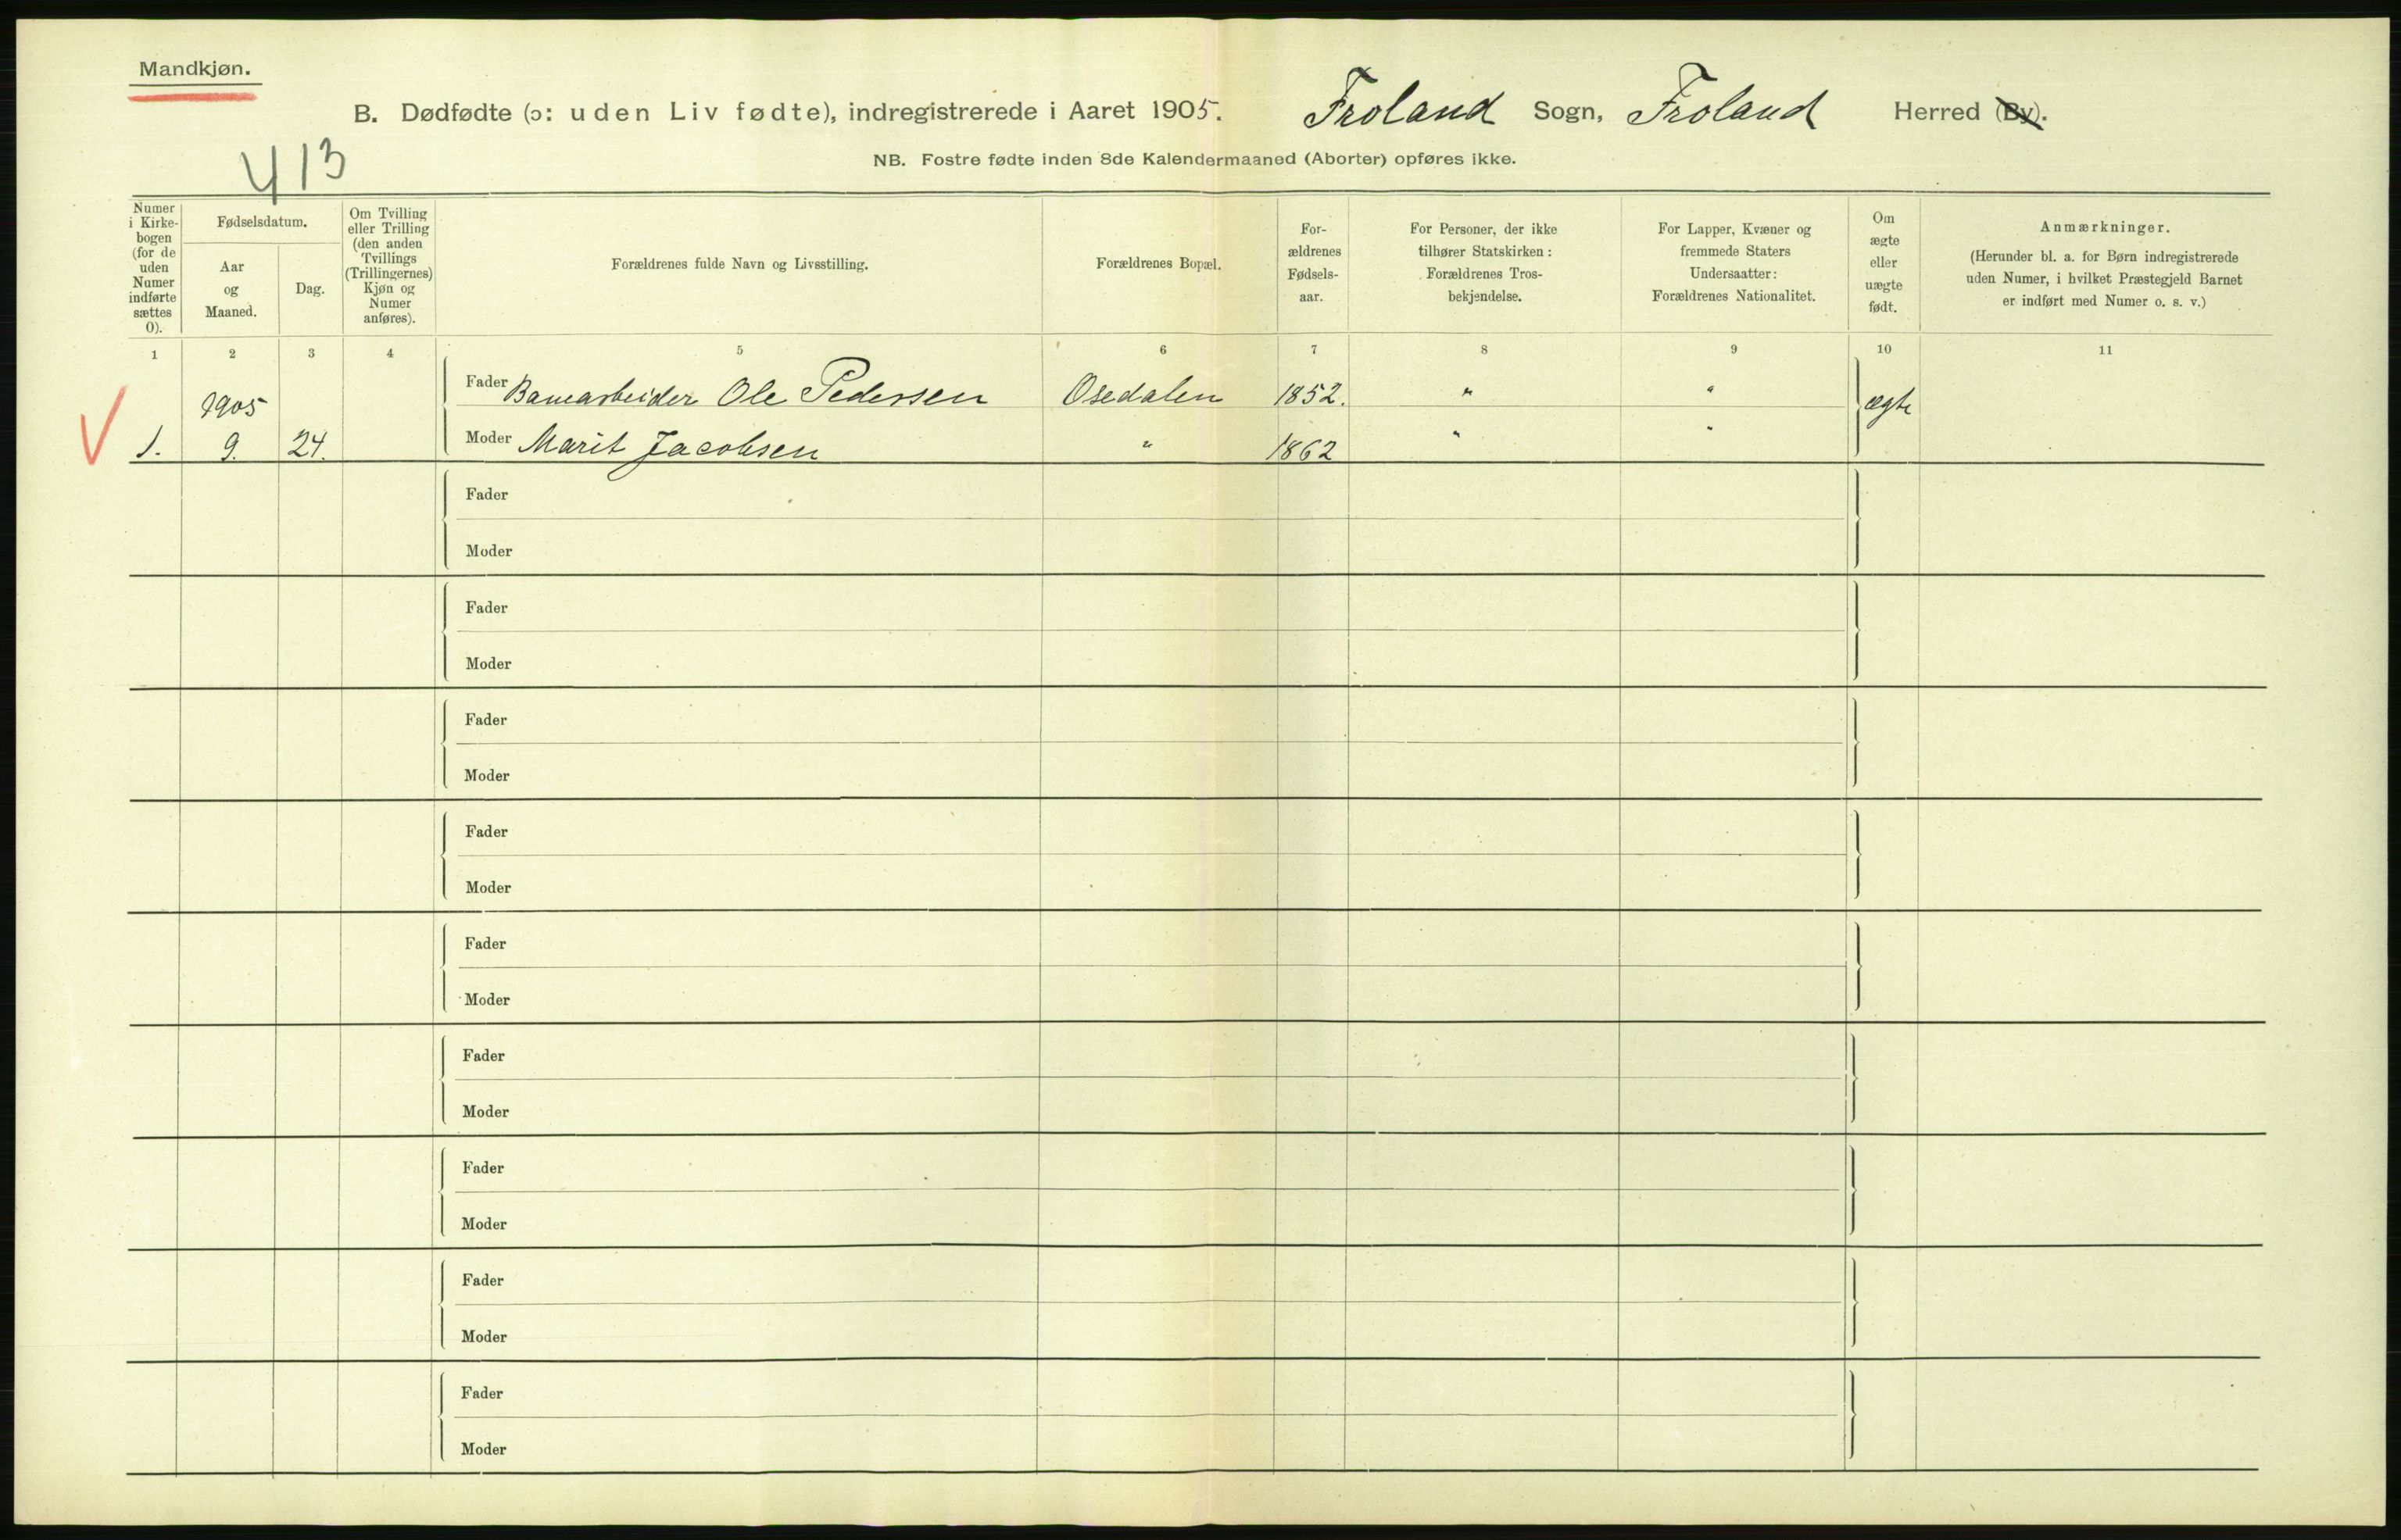 Mandkjøn.
B. Dødfødte (ɔ: uden Liv fødte), indregistrerede i Aaret 1905. Froland Sogn, Froland Herred (By).
413
NB. Fostre fødte inden 8de Kalendermaaned (Aborter) opføres ikke.
Numer
i Kirke-
bogen
(for de
uden
Numer
indførte
sættes
0).
Fødselsdatum.
Aar
og
Maaned.
Dag.
Om Tvilling
eller Trilling
(den anden
Tvillings
(Trillingernes)
Kjøn og
Numer
anføres).
Forældrenes fulde Navn og Livsstilling.
Forældrenes Bopæl.
For-
ældrenes
Fødsels-
aar.
For Personer, der ikke
tilhører Statskirken:
Forældrenes Tros-
bekjendelse.
For Lapper, Kvæner og
fremmede Staters
Undersaatter:
Forældrenes Nationalitet.
Om
ægte
eller
uægte
født.
Anmærkninger.
(Herunder bl. a. for Børn indregistrerede
uden Numer, i hvilket Præstegjeld Barnet
er indført med Numer o. s. v.)
1 2 3 4 5 6 7 8 9 10 11
1905 Fader Banearbeider Ole Pedersen Osedalen 1852. " " ægte
1. 9. 24. Moder Marit Jacobsen " 1862 " "
Fader
Moder
Fader
Moder
Fader
Moder
Fader
Moder
Fader
Moder
Fader
Moder
Fader
Moder
Fader
Moder
Fader
Moder